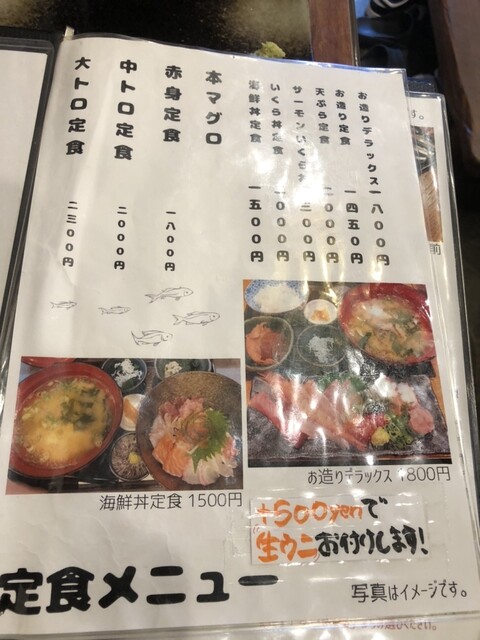 お造りデラックス 一八〇〇円
お造り定食 一四五〇円
天ぷら定食 一〇〇〇円
サーモンいくら丼 一三〇〇円
いくら丼定食 二〇〇〇円
海鮮丼定食 一五〇〇円
本マグロ
赤身定食 一八〇〇円
中トロ定食 二〇〇〇円
大トロ定食 二三〇〇円
お造りデラックス 1800円
海鮮丼定食 1500円
+500yenで
生ウニお付けします!
定食メニュー
写真はイメージです。